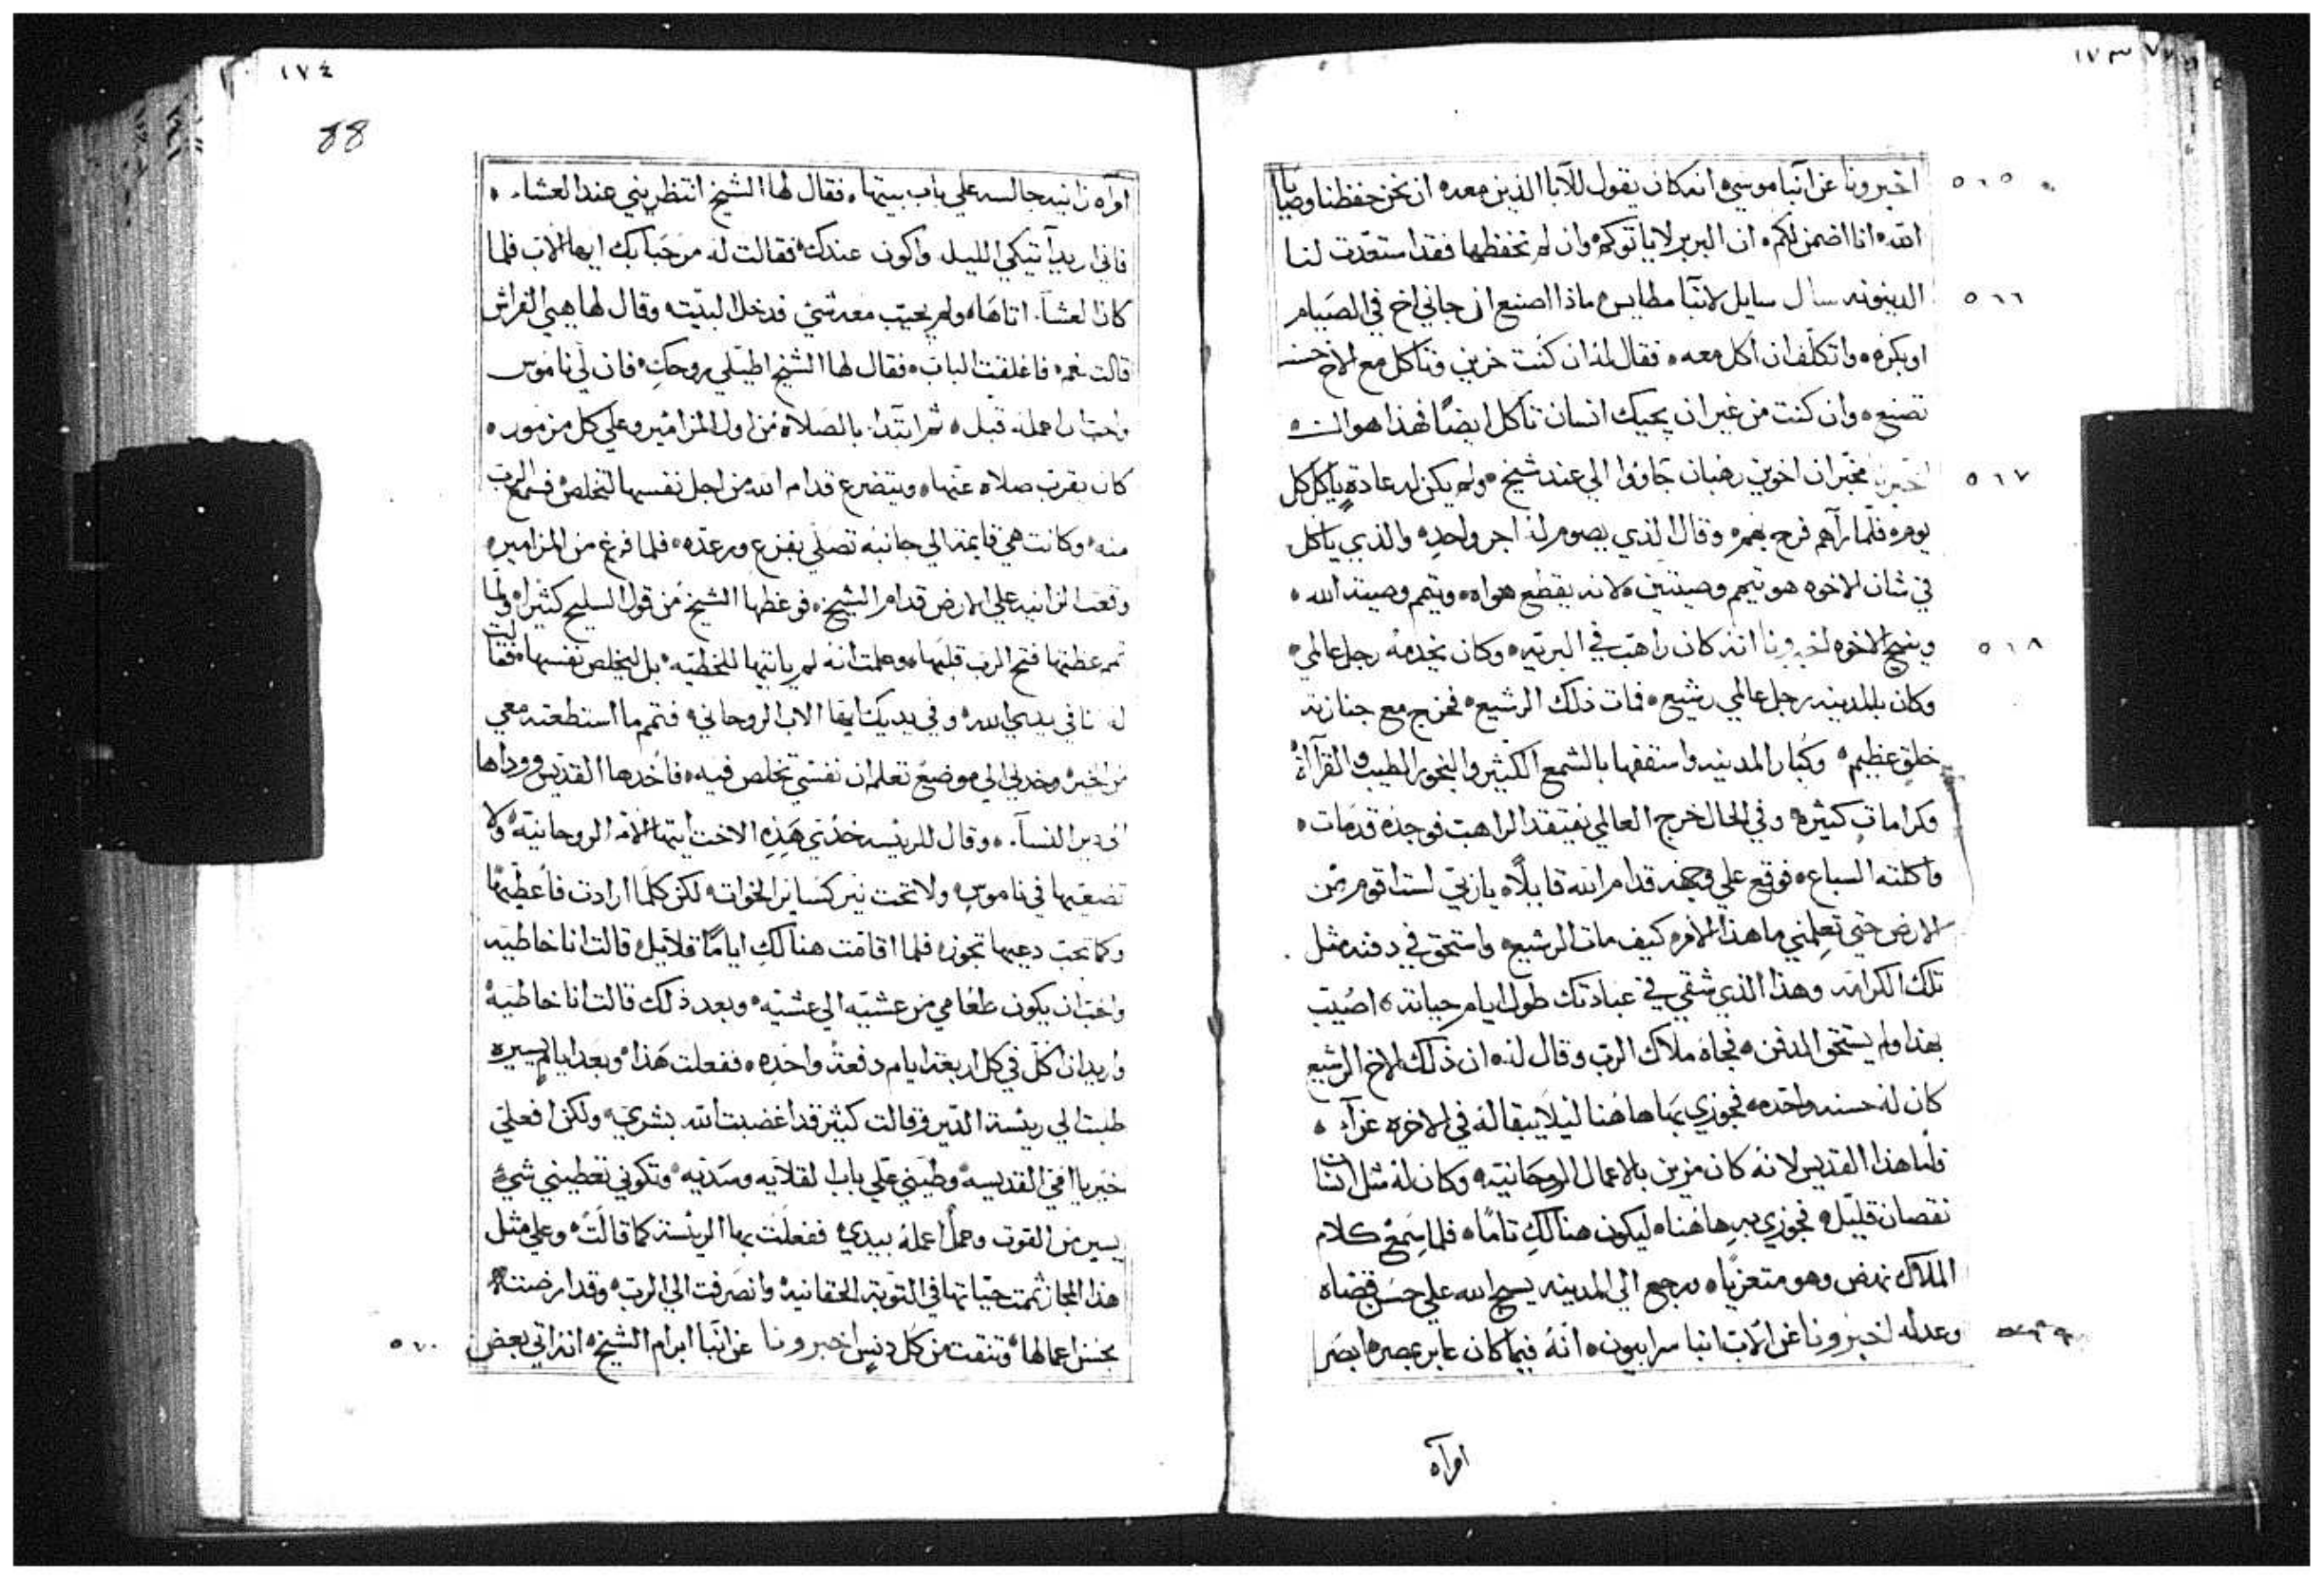 ١٧٣
٥٦٥
اخبرونا عن انبا موسي انه كان يقول للآبا الذين معه ان نحن حفظنا وصايا
الله انا اضمن لكم ان البربر لا ياتوكم وان لم نحفظها فقد استعدت لنا
٥٦٦
الدينونه سال سايل لانبا مطايس ماذا اصنع ان جاني اخ في الصيام
او بكره واتكلف ان اكل معه فقال له ان كنت حزين وتاكل مع الاخ حسنا
تصنع وان كنت من غير ان يجيك انسان تاكل ايضًا فهذا هو
٥٦٧
اخبرنا مخبر ان اخوين رهبان جاووا الي عند شيخ ولم يكن له عادةٍ ياكل كل
يوم فلما رآهم فرح بهم وقال الذي يصوم له اجر واحده والذي ياكل
في شان الاخوه هو تيمم وصيتين لانه يقطع هواه ويتمم وصية الله
٥٦٨
وينيح الاخوه اخبرونا انه كان راهب في البريه وكان يخدمه رجل عالمي
وكان بالمدينه رجل عالمي رشيع فمات ذلك الرشيع فخرج مع جنازته
خلقٍ عظيم وكبار المدينه واسقفها بالشمع الكثير والبخور الطيب والقرآاة
وكراماتٍ كثيره وفي الحال خرج العالمي يفتقد الراهب فوجده قد مات
واكلته السباع فوقع علي وجهه قدام الله قايلًا يا ربي لست اقوم من
الارض حتي تعلمني ما هذا الامر كيف مات الرشيع واستحق في دفنه مثل
تلك الكرامه وهذا الذي شقي في عبادتك طول ايام حياته اصيب
بهذا ولم يستحق الدفن فجاه ملاك الرب وقال له ان ذلك الاخ الرشيع
كان له حسنه واحده فجوزي بها هاهنا ليلا يبقا له في الاخره عزآء
فاما هذا القديس لانه كان مزين بالاعمال الروحانيه وكان له مثل انسان
نقصان قليل فجوزي به هاهنا ليكون هنالك تامًا فلما سمع كلام
الملاك نهض وهو متعزيًا ورجع الي المدينه يسبح الله علي حسن قضاه
وعدله اخبرونا عن الاب انبا سرابيون انه فيما كان عابر بمصر ابصر
امرآه
١٧٤
88
امرآه زانيه جالسه علي باب بيتها فقال لها الشيخ انتظريني عند العشا
فاني اريد آتيكي الليله واكون عندك فقالت له مرحبا بك ايها الاب فلما
كان العشآ اتاها ولم يجيب معه شي فدخل البيت وقال لها هيي الفراش
قالت نعم فاغلقت الباب فقال لها الشيخ اطيلي روحكِ فان لي ناموس
واحب ان اعمله قبل ثم ابتدا بالصلاة من اول المزامير وعلي كل مزمور
كان يقرب صلاه عنها ويتضرع قدام الله من اجل نفسها لتخلص فسمع الرب
منه وكانت هي قايمه الي جانبه تصلي بفزع ورعده فلما فرغ من المزامير
وقعت الزانيه علي الارض قدام الشيخ فوعظها الشيخ من قول السليح كثيرًا ولما
تمم عظتها فتح الرب قلبها وعلمت انه لم ياتيها للخطيه بل ليخلص نفسها فقالت
له انا في يدي الله وفي يديك ايها الاب الروحاني فتمم ما استطعته معي
من الخير وخدني الي موضع تعلم ان نفسي تخلص فيه فاخدها القديس ووداها
الي دير النسآ وقال للريسه خذي هذه الاخت ايتها الام الروحانيه ولا
تضعيها في ناموس ولا تحت نير كساير الخوات لكن كلما ارادت فاعطيها
وكما تحب دعيها تجوز فلما اقامت هنالك ايامًا قلايل قالت انا خاطيه
واحب ان يكون طعامي من عشيه الي عشيه وبعد ذلك قالت انا خاطيه
واريد ان اكل في كل اربعة ايام دفعةً واحده ففعلت هذا وبعد ايامٍ يسيره
طلبت الي ريسة الدير وقالت كثير قد اغضبت الله بشري ولكن افعلي
خير يا امي القديسه وطيني علي باب القلايه وسديه وتكوني تعطيني شي
يسير من القوت وعمل اعمله بيدي ففعلت بها الريسة كما قالت وعلي مثل
هذا المجاز تممت حياتها في التوبه الحقانيه وانصرفت الي الرب وقد ارضته
٥٧٠
بحسن اعمالها وتنقت من كل دنسٍ اخبرونا عن انبا ابرام الشيخ انه اتي بعض